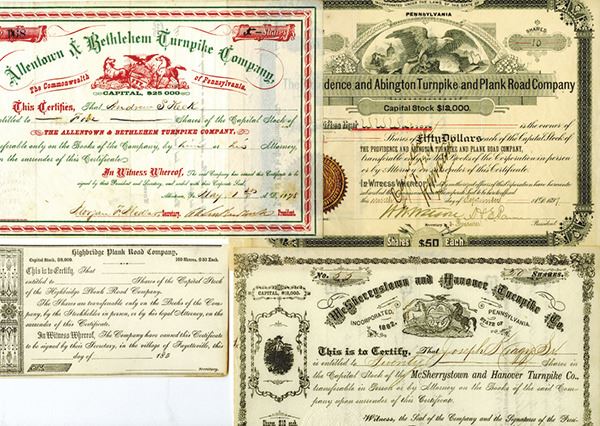 Shares
Allentown & Bethlehem Turnpike Company,
The Commonwealth of Pennsylvania.
CAPITAL $25000
This Certifies, That
entitled to Five Shares of the Capital Stock of
THE ALLENTOWN & BETHLEHEM TURNPIKE COMPANY,
ferable only on the Books of the Company, by his Attorney
on the surrender of this Certificate.
In Witness Whereof, The Company has caused this Certificate to be
signed by their President and Secretary, and sealed with this Corporate Seal.
Allentown, Pa.
Secretary. President.
PENNSYLVANIA
SHARES
10
dence and Abington Turnpike and Plank Road Company
Capital Stock $12,000.
is the owner of
Fifty Dollars each of the Capital Stock of
THE PROVIDENCE AND ABINGTON TURNPIKE AND PLANK ROAD COMPANY,
transferable only on the Books of the Corporation in person
or by Attorney on surrender of this Certificate.
IN WITNESS WHEREOF
President
Shares $50 Each.
Highbridge Plank Road Company.
Capital Stock, $8,000. 160 Shares, $50 Each.
This is to Certify, That
entitled to Shares of the Capital Stock
of the Highbridge Plank Road Company.
The Shares are transferable only on the Books of the Com-
pany, by the Stockholder in person, or by his legal Attorney, on the
surrender of this Certificate.
In Witness Whereof, The Company have caused this Certificate
to be signed by their Secretary, in the village of Fayetteville, this
day of 185
Secretary.
No. Shares.
CAPITAL,
McSherrystown and Hanover Turnpike Co.
INCORPORATED
1882.
PENNSYLVANIA.
STATE OF
This is to Certify, That Joseph
is entitled to Shares in
the Capital Stock of the McSherrystown and Hanover Turnpike Co.,
transferable in Person or by Attorney on the Books of the said Com-
pany upon surrender of this Certificate.
Witness, the Seal of the Company and the Signatures of the Presi-
Shares, $10 each.